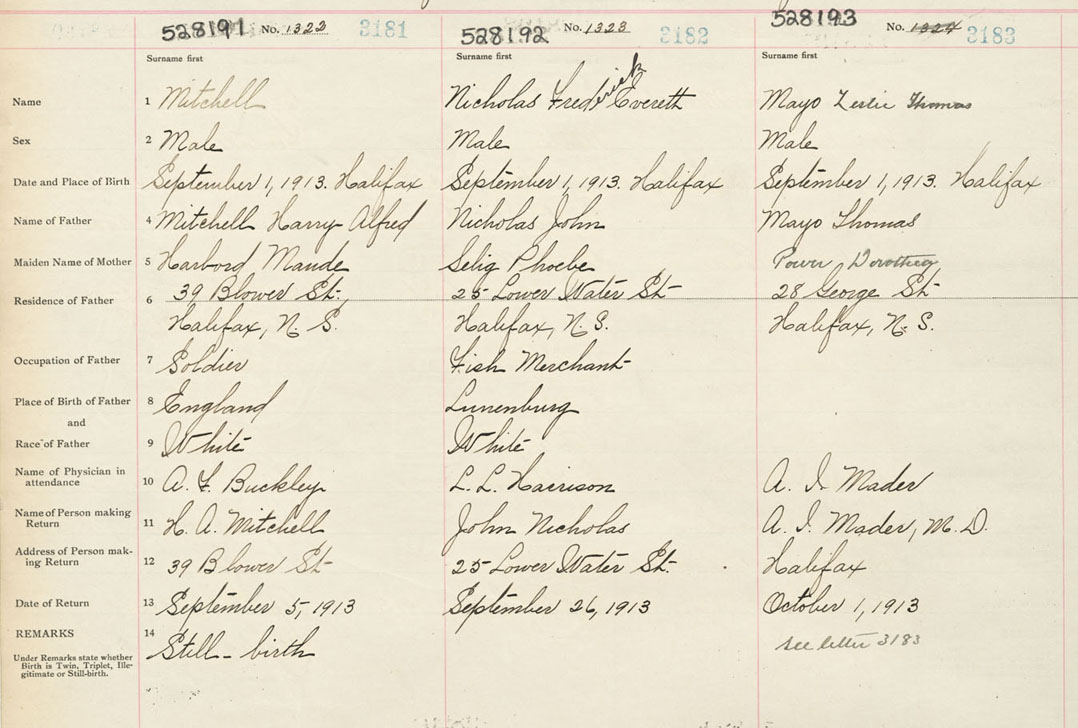 528191 No. 1322 3181 528192 No. 1323 3182 528193 No. 1324 3183
Surname first Surname first Surname first
Name 1 Mitchell Nicholas Frederick Evereth Mayo Leslie Thomas
Sex 2 Male Male Male
Date and Place of Birth 3 September 1, 1913. Halifax September 1, 1913. Halifax September 1, 1913. Halifax
Name of Father 4 Mitchell Harry Alfred Nicholas John Mayo Thomas
Maiden Name of Mother 5 Harbord Maude Selig Phoebe Power, Dorothey
Residence of Father 6 39 Blower St., 25 Lower Water St. 28 George St.
Halifax, N. S. Halifax, N. S. Halifax, N. S.
Occupation of Father 7 Soldier Fish Merchant
Place of Birth of Father 8 England Lunenburg
and
Race of Father 9 White White
Name of Physician in
attendance 10 A. F. Buckley L. L. Harrison A. I. Mader
Name of Person making
Return 11 H. A. Mitchell John Nicholas A. I. Mader, M. D.
Address of Person mak-
ing Return 12 39 Blower St. 25 Lower Water St. Halifax
Date of Return 13 September 5, 1913 September 26, 1913 October 1, 1913
REMARKS 14 Still-birth see letter 3183
Under Remarks state whether
Birth is Twin, Triplet, Ille-
gitimate or Still-birth.